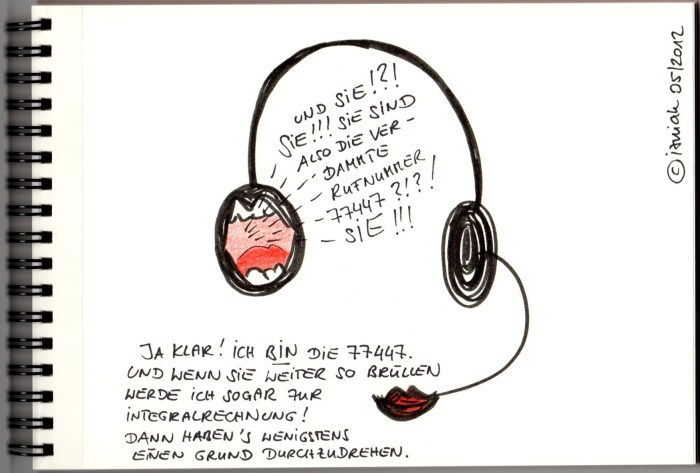 UND SIE!?!
SIE!!! SIE SIND
ALSO DIE VER-
DAMMTE
RUFNUMMER
77447?!?!
SIE!!!
JA KLAR! ICH BIN DIE 77447.
UND WENN SIE WEITER SO BRÜLLEN
WERDE ICH SOGAR ZUR
INTEGRALRECHNUNG!
DANN HABEN'S WENIGSTENS
EINEN GRUND DURCHZUDREHEN.
© izniah 05/2012